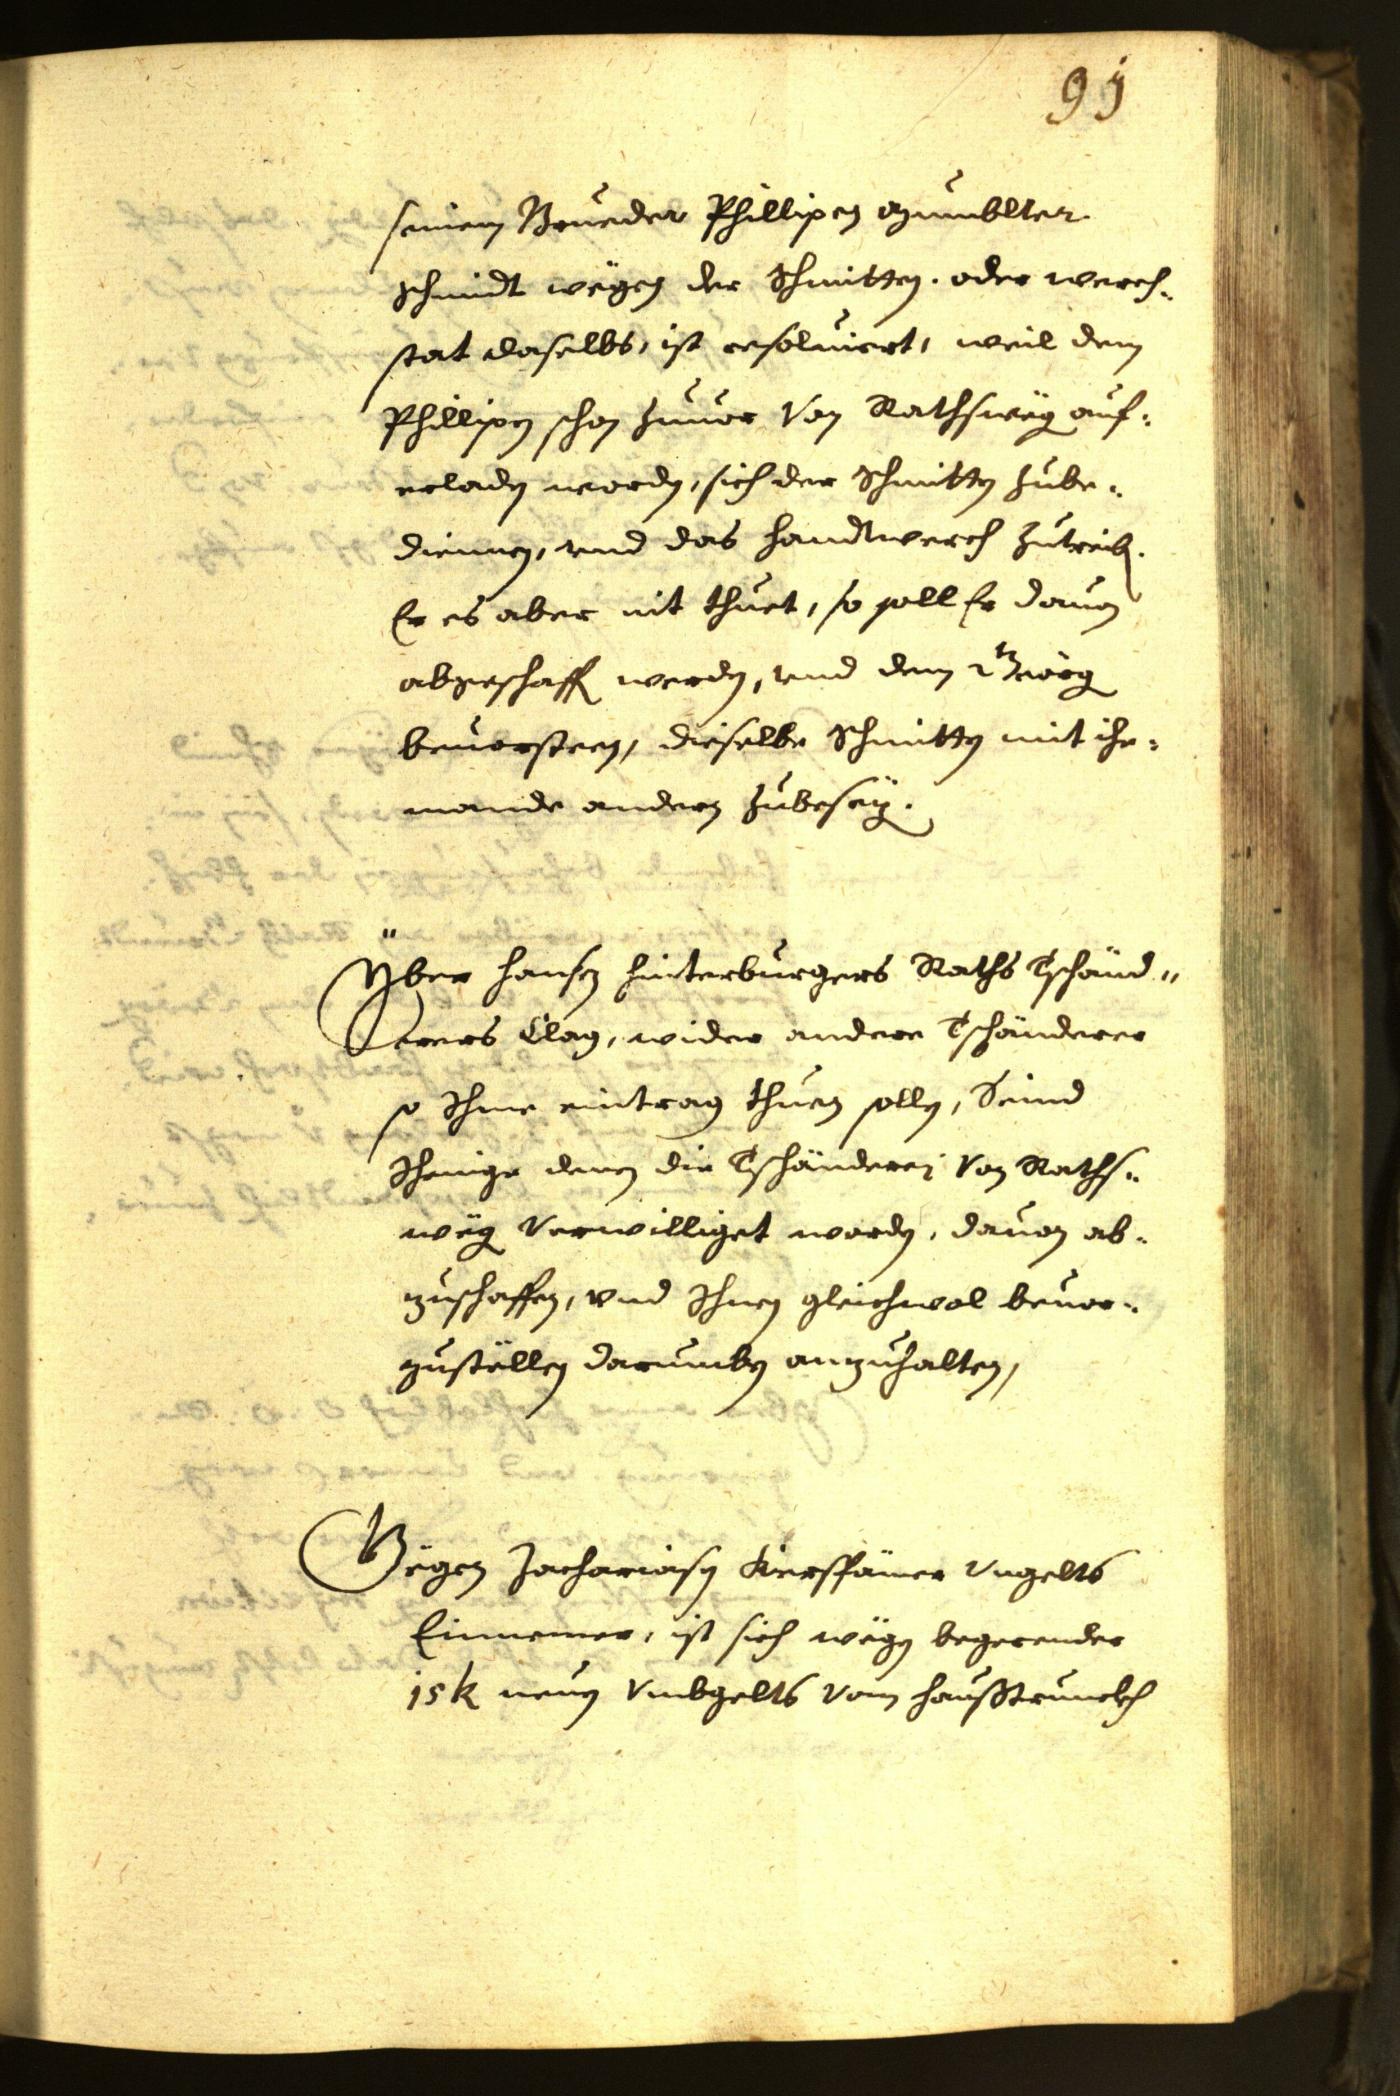 91
seinem Brueder Phillipen
schmidt wëgen der Schmitten. oder werch-
stat daselbs, ist resoluiert, weil dem
Phillipen schon zuuor von Rathswëg auf-
erladen worden, sich der Schmitten zube-
dienen, vnd das handtwerch zutreiben.
Er es aber nit thuet, so soll Er dauon
abgeschafft werden, vnd dem
beuorsteen, dieselbe Schmitten mit ihe-
mande andern zubesezen.
Yber Hansen Hinterburgers Raths Tschänd-
erers Clag, wider andere Tschänderer
so Ihme eintrag thuen sollen, Seind
Ihenige denen die Tschänderej von Raths-
wëg verwilliget worden, dauon ab-
zuschaffen, vnd Ihnen gleichwol beuor-
zustëllen darumben anzuhalten,
Gëgen Zachariasen Vngelts
Einnemer, ist sich wëgen begerender
15 k neuen Vmbgelts vom haußtrunckh